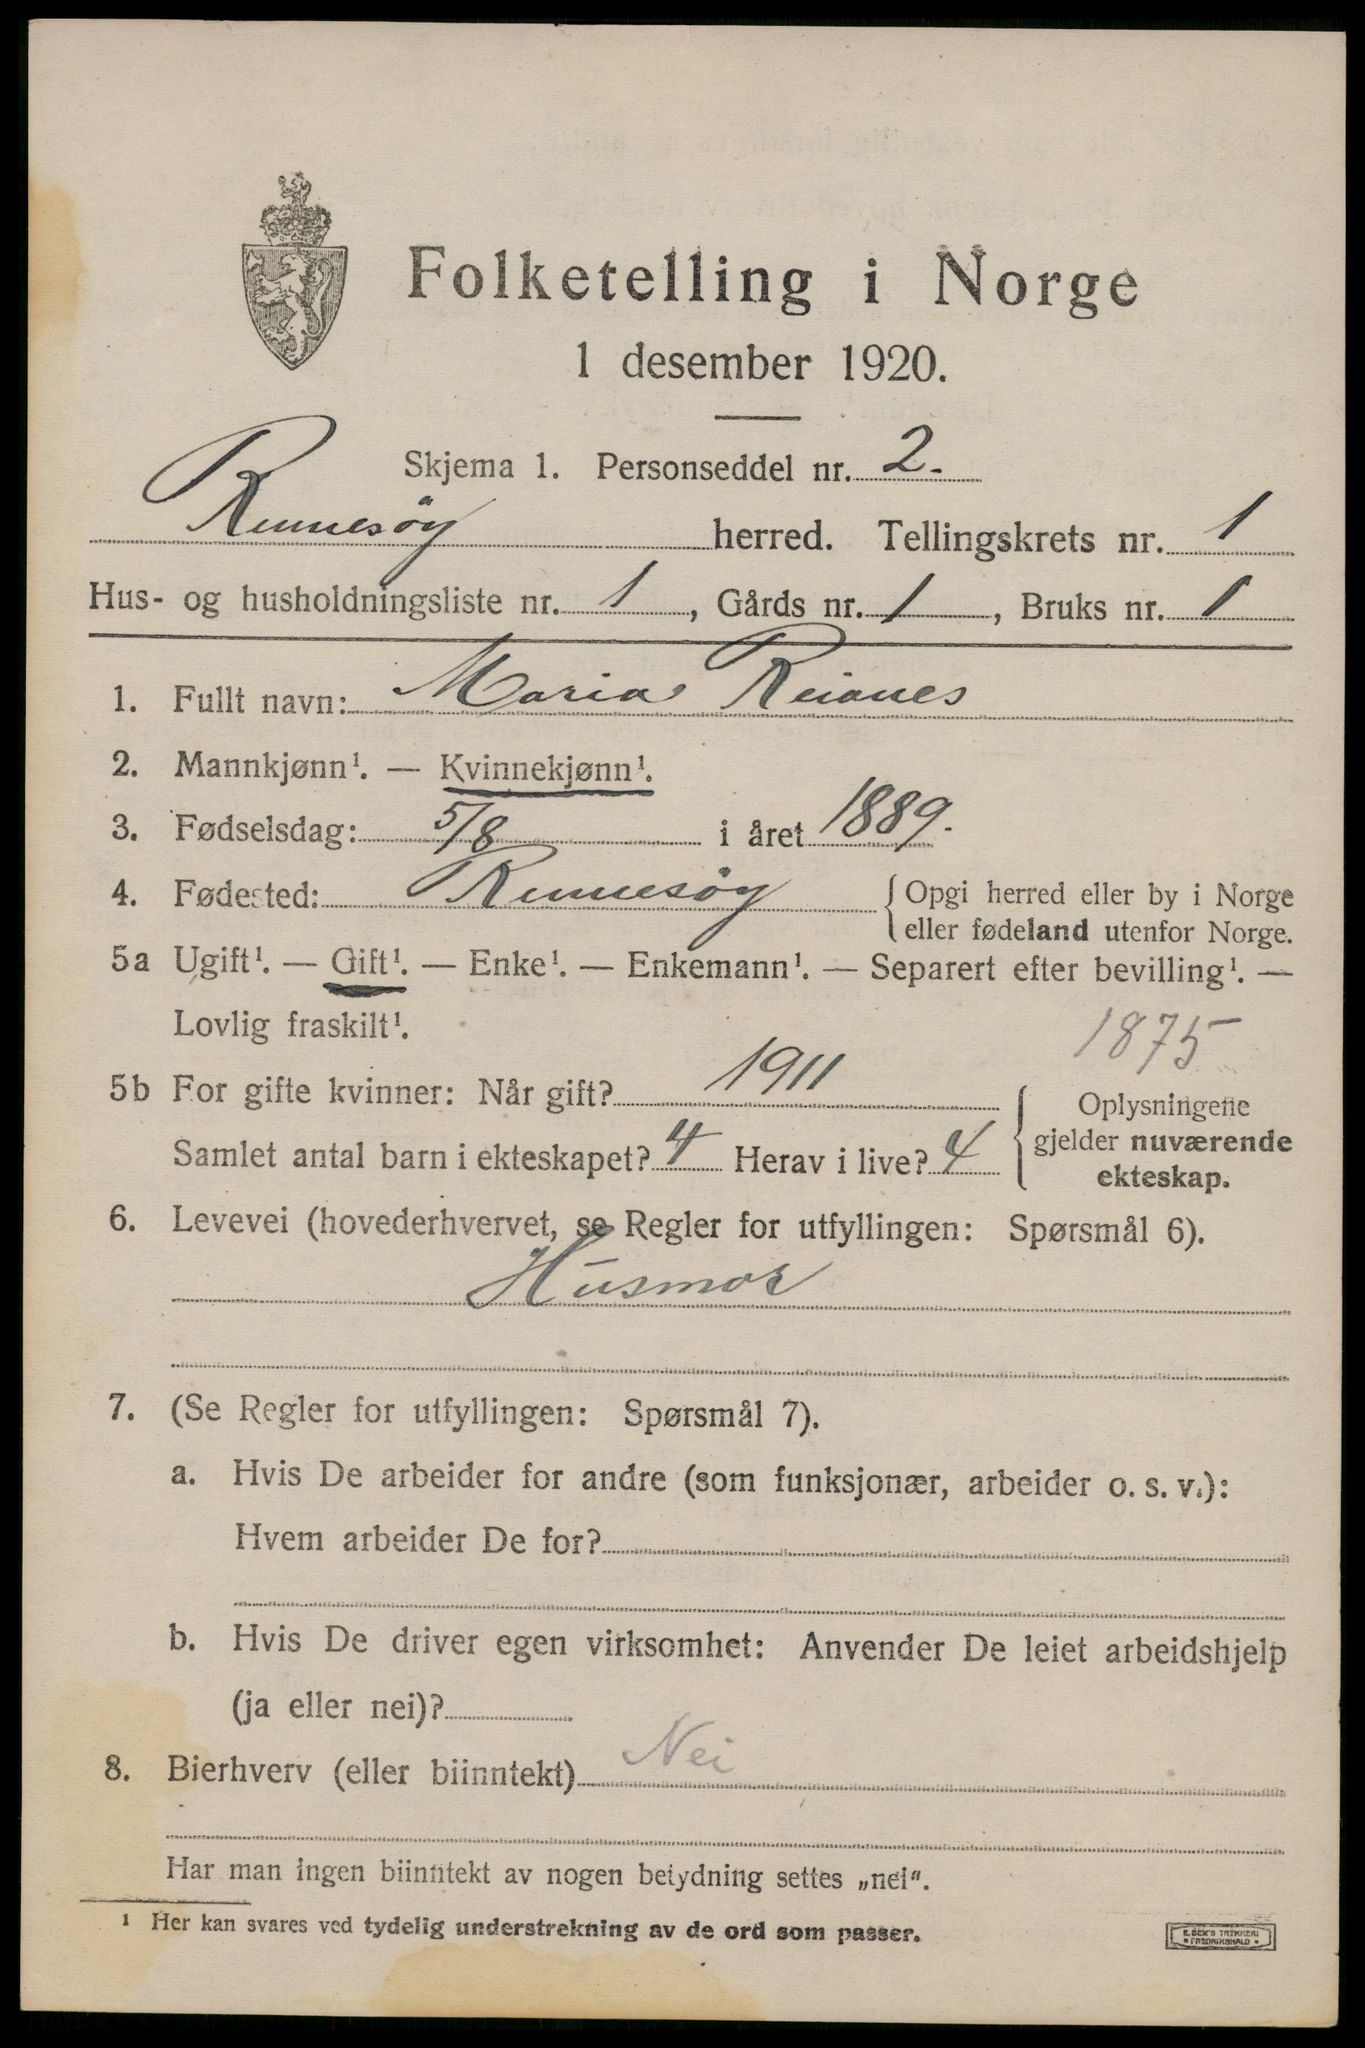 Folketelling i Norge
1 desember 1920.
Skjema 1. Personseddel nr. 2.
Rennesöy herred. Tellingskrets nr. 1
Hus- og husholdningsliste nr. 1, Gårds nr. 1, Bruks nr. 1
1. Fullt navn: Maria Reianes
2. Mannkjønn¹. — Kvinnekjønn¹.
3. Fødselsdag: 5/8 i året 1889.
4. Fødested: Rennesöy { Opgi herred eller by i Norge
eller fødeland utenfor Norge.
5a Ugift¹. — Gift¹. — Enke¹. — Enkemann¹. — Separert efter bevilling¹. —
Lovlig fraskilt¹. 1875
5b For gifte kvinner: Når gift? 1911 { Oplysningene
Samlet antal barn i ekteskapet? 4 Herav i live? 4 gjelder nuværende
ekteskap.
6. Levevei (hovederhvervet, se Regler for utfyllingen: Spørsmål 6).
Husmor
7. (Se Regler for utfyllingen: Spørsmål 7).
a. Hvis De arbeider for andre (som funksjonær, arbeider o. s. v.):
Hvem arbeider De for?
b. Hvis De driver egen virksomhet: Anvender De leiet arbeidshjelp
(ja eller nei)?
8. Bierhverv (eller biinntekt) Nei
Har man ingen biinntekt av nogen betydning settes „nei".
¹ Her kan svares ved tydelig understrekning av de ord som passer.
E. SEM'S TRYKKERI
FREDRIKSHALD